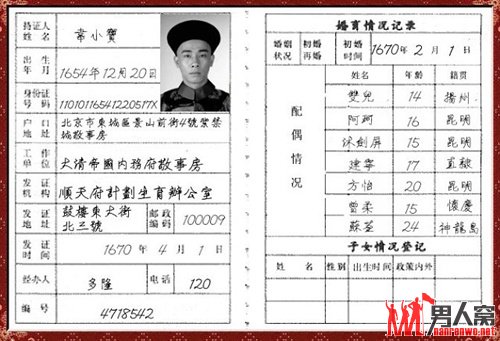 持证人姓名 韋小寶
出生年月 1654年12月20日
身份证号码 11010116541220517X
户口地址 北京市東城區景山前街4號紫禁
城敬事房
工作单位 大清帝國内務府敬事房
发证机构 順天府計劃生育辦公室
发证地址 鼓樓東大街
北三號 邮政编码 100009
发证时间 1670年4月1日
经办人 多隆 电话 120
编号 4718542
婚育情况记录
婚姻状况 初婚 再婚 初婚时间 1670年2月1日
配偶情况
姓名 年龄 籍贯
雙兒 14 揚州
阿珂 16 昆明
沐劍屏 15 昆明
建寧 17 直隸
方怡 20 昆明
曾柔 15 懷慶
蘇荃 24 神龍島
子女情况登记
姓名 性别 出生时间 政策内外
男人窝
nanrenwo.net